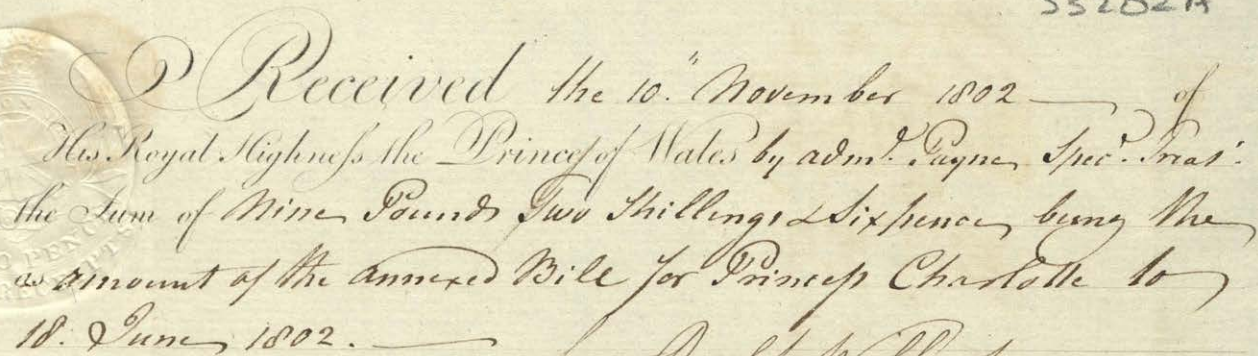 55202A
Received the 10th November 1802 — of
His Royal Highneſs the Prince of Wales by Adml. Payne Specl. Treasr.
the Sum of Nine Pounds Two Shillings & Sixpence being the
amount of the annexed Bill for Princeſs Charlotte to
18. June 1802. —